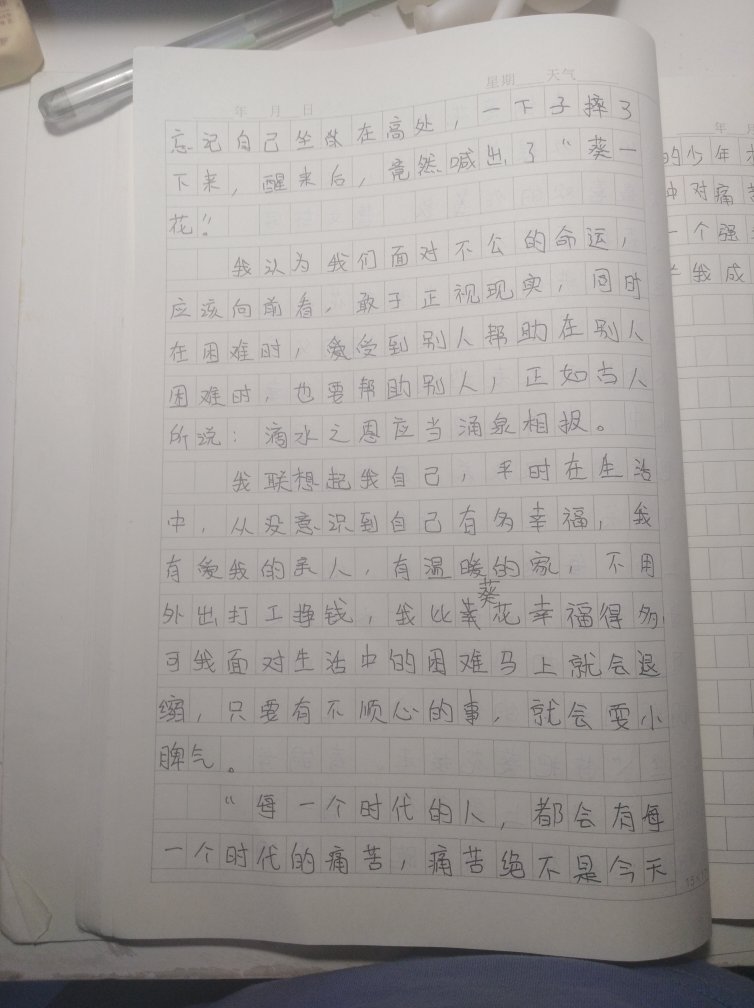 星期 天气
年 月 日
忘记自己坐在高处，一下子摔了
下来，醒来后，竟然喊出了“葵一
花”。
我认为我们面对不公的命运，
应该向前看，敢于正视现实，同时
在困难时，爱受到别人帮助在别人
困难时，也要帮助别人，正如古人
所说：滴水之恩应当涌泉相报。
我联想起我自己，平时在生活
中，从没意识到自己有多幸福，我
有爱我的亲人，有温暖的家，不用
外出打工挣钱，我比葵花幸福得多，
可我面对生活中的困难马上就会退
缩，只要有不顺心的事，就会耍小
脾气。
“每一个时代的人，都会有每
一个时代的痛苦，痛苦绝不是今天
年
的少年
中对痛苦
一个强
我成